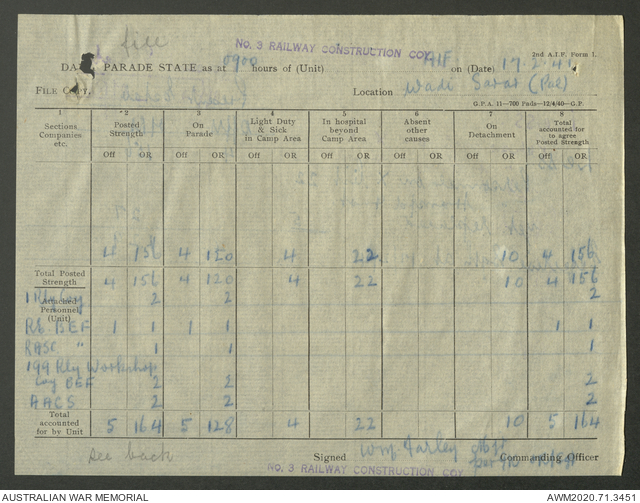 file
No. 3 RAILWAY CONSTRUCTION COY AIF
2nd A.I.F. Form 1.
PARADE STATE as at 0900 hours of (Unit) on (Date) 17.2.41
FILE COPY. Location Wadi Sarar (Pal)
G.P.A. 11—700 Pads—12/4/40—G.P.
1 2 3 4 5 6 7 8
Sections Companies etc. Posted Strength On Parade Light Duty & Sick in Camp Area In hospital beyond Camp Area Absent other causes On Detachment Total accounted for to agree Posted Strength
Off OR Off OR Off OR Off OR Off OR Off OR Off OR
4 156 4 120 4 22 10 4 156
Total Posted Strength 4 156 4 120 4 22 10 4 156
Attached Personnel (Unit)
2 2 2
BEF 1 1 1 1 1 1
RASC " 1 1 1
199 Rly Workshop
Coy BEF 2 2 2
AACS 2 2 2
Total accounted for by Unit 5 164 5 128 4 22 10 5 164
see back
Signed Wm Farley Commanding Officer
No. 3 RAILWAY CONSTRUCTION COY
AUSTRALIAN WAR MEMORIAL AWM2020.71.3451